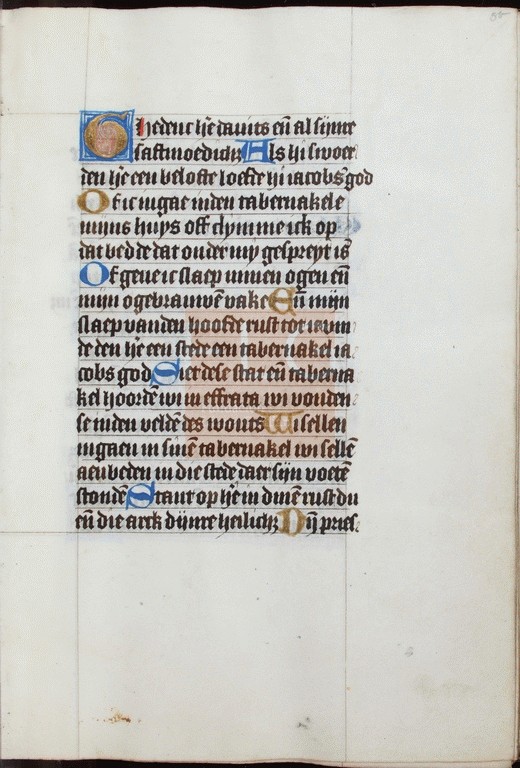 Ghedenc hr̄e davits en̄ al sijnre
saftmoedich₃ Als hi swoer
den hr̄e een belofte loefde hi iacobs god
Of ic ingae inden tabernakele
mijns huys off clymme ick op
dat bedde dat onder my gespreyt is
Of geve ic slaep minen ogen en̄
mijn ogebrauwē vake En̄ mijn
slaep vanden hoofde rust tot ic vin
de den hr̄e een stede een tabernakel ia
cobs god Siet dese stat en̄ taberna
kel hoordē wi in effrata wi vonden
se inden veldē des wouts Wi sellen
ingaen in sinē tabernakel wi sellē
aenbeden in die stede daer sijn voetē
stondē Staut op hr̄e in dinē rust du
en̄ die arck dijnre heilich₃ Dijn̄ pries